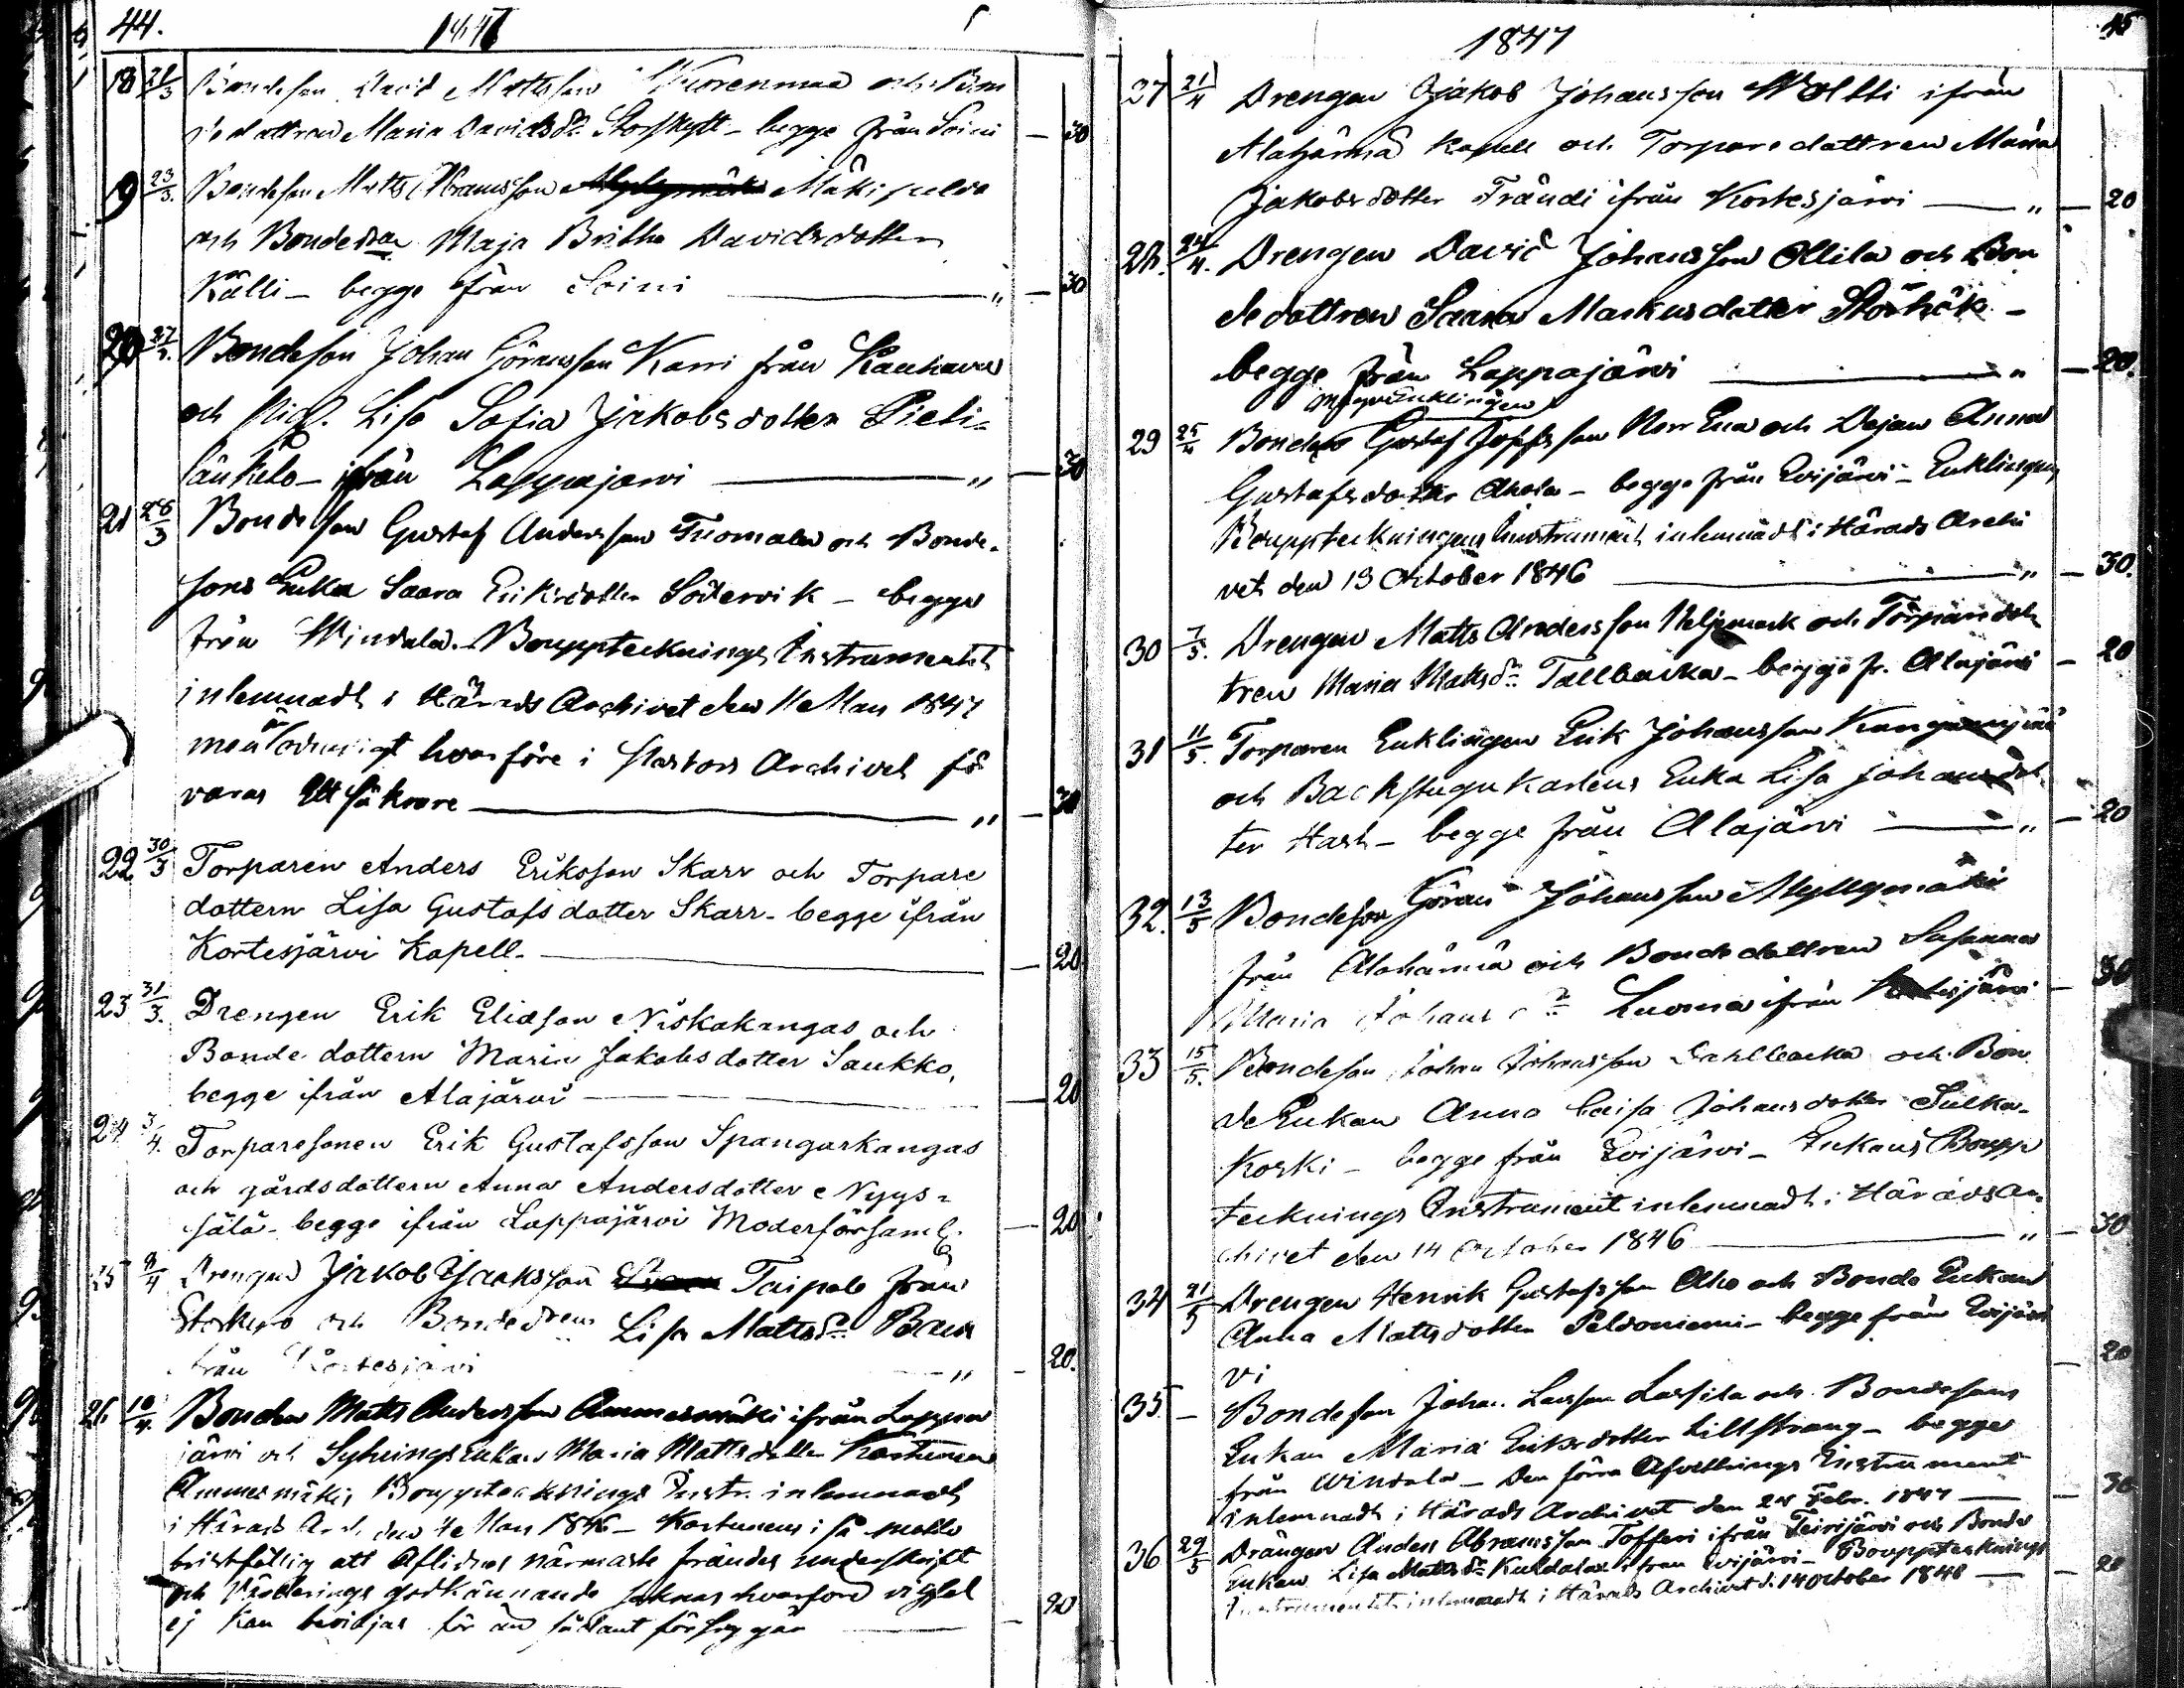 44.
1847
18 21/3 Bondeson David Mattsson Vuorenmaa och Bon
dedattren Maria Davidsdr Storskytt - begge från Soini — 30
19 23/3. Bondeson Matts Abramsson Mäki
och Bondedtr Maja Britha Davidsdotter
Källi - begge från Soini — " — 30
20 27/3. Bondeson Johan Göransson Karri från Kauhava
och Pig. Lisa Sofia Jakobsdotter Pieti-
länkelo - ifrån Lappajärvi — " — 30
21 28/3 Bondeson Gustaf Andersson Tuomala och Bonde-
sons Enka Saara Eriksdotter Södervik - begge
från Windala. Bouppteckningsinstrumentet
inlemnadt i Härads Archivet den 11 Mars 1847
men hvarföre i Pastors Archivet
varas — " — 30
22 30/3 Torparen Anders Eriksson Skarr och Torpare
dottern Lisa Gustafsdotter Skarr - begge ifrån
Kortesjärvi Kapell. — 20
23 31/3. Drengen Erik Eliasson Niskakangas och
Bondedottern Maria Jakobsdotter Saukko,
begge ifrån Alajärvi — 20
24 3/4. Torparesonen Erik Gustafsson Spangarkangas
och gårdsdottern Anna Andersdotter Nygs-
sälä - begge ifrån Lappajärvi Moderförsaml. — 20
25 9/4 Drengen Jakob Jaaksson Taipale från
Storkyro och Bondedtren Lisa Mattsdr
från Kortesjärvi — " — 20.
26 10/4. Bonden Matts Andersson Ammesmäki ifrån Lappa
järvi och Sytnings Enkan Maria Mattsdotter Kortunen
Ammesmäkis Boupptecknings Instr. inlemnadt
i Härads Arch. den 4 Mars 1846 - Kortunens i så motto
bristfällig att Aflidnes närmaste fränders underskrift
och Värderings godkännande saknas hvarföre vigsel
ej kan beviljas för än sådant försiggår — 20
45
1847
27 21/4 Drengen Jakob Johansson Woltti ifrån
Alahärmä Kapell och Torparedattren Maria
Jakobsdotter Frändi ifrån Kortesjärvi — " — 20
28. 24/4. Drengen David Johansson Ollila och Bon
dedattren Saara Markusdotter Storhök -
begge från Lappajärvi — " — 20.
29 25/4 Gustaf och Anna
Gustafsdotter Ahola - begge från Evijärvi - Enklingens
Bouppteckningens Instrument inlemnadt i Härads Archi
vet den 13 October 1846 — " — 30.
30 7/5. Drengen Matts Andersson och Torparedot
tren Maria Mattsdr Tallbacka - begge fr. Alajärvi — 20
31 11/5. Torparen Enklingen Erik Johansson
och Backstugukarlens Enka Lisa Johansdot
ter Harh - begge från Alajärvi — " — 20
32. 13/5 Bondeson Göran Johansson Myllymäki
från Alahärmä och Bondedattren Susanna
Maria Johansdr Luoma ifrån Kortesjärvi — 30
33 15/5. Bondeson Johan Johansson Dahlbacka och Bon
de Enkan Anna Caisa Johansdotter Sulka-
koski - begge från Evijärvi - Enkans Boupp
tecknings Instrument inlemnadt i Härads Ar-
chivet den 14 October 1846 — " — 30
34 21/5 Drengen Henrik Gustafsson Aho och Bonde Enkan
Anna Mattsdotter Peldoniemi - begge från Evijär
vi — 20
35 - Bondeson Johan Larsson Lassila och Bondesons
Enkan Maria Eriksdotter Lillstrang - begge
från Windala - Den förra Afvittrings Instrument
inlemnadt i Härads Archivet den 24 Febr. 1847 — 30
36 29/5 Drängen Anders Abramsson Tofferi ifrån Teirijärvi och Bonde
Enkan Lisa Mattsdr Kuldalax ifrån Evijärvi - Boupptecknings
Instrumentet inlemnadt i Härads Archivet d. 14 October 1846 — 20